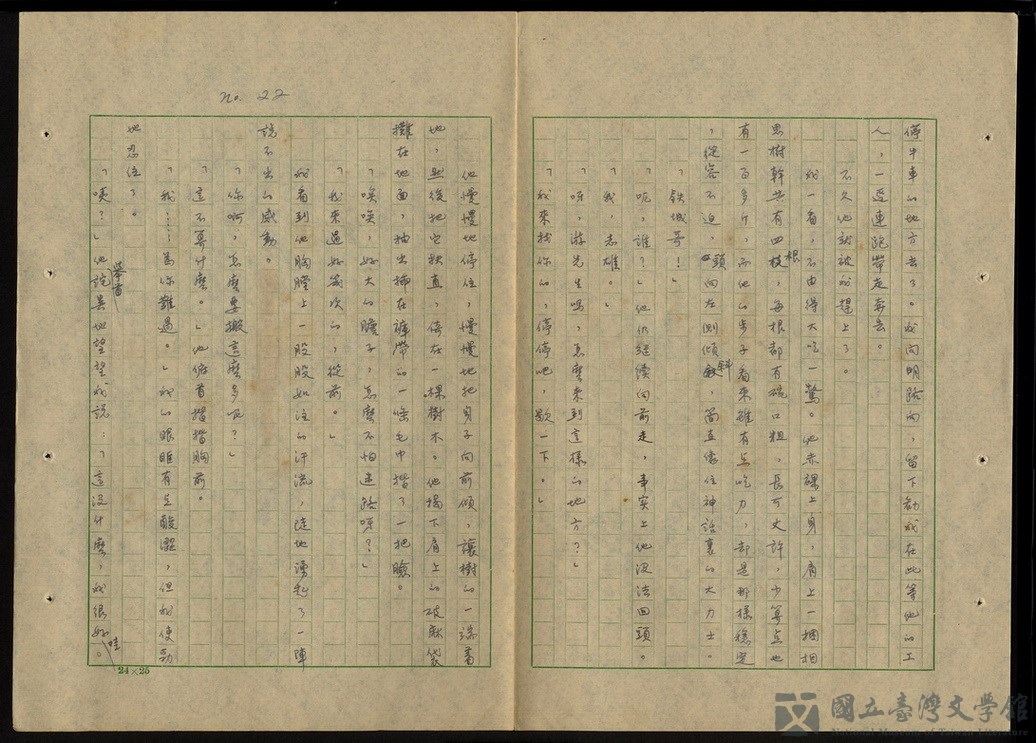 no. 22
停牛車的地方去了。我向明路伯，留下勸我在此等他的工
人，一逕連跑帶走奔去。
不久他就被我趕上了。
我一看，不由得大吃一驚。他赤裸上身，肩上一捆相
思樹幹共有四根，每根都有碗口粗，長可丈許，少算點也
有一百多斤，而他的步子看來雖有點吃力，却是那樣穩定
，從容不迫，頭向左側傾斜，簡直像位神話裏的大力士。
「鉄城哥！
「呃，誰？」他仍繼續向前走，事實上他沒法回頭。
「我，志雄。」
「呀，游先生嗎，怎麼來到這樣的地方？」
「我來找你的，停停吧，歇一下。」
他慢慢地停住，慢慢地把身子向前傾，讓樹的一端著
地，然後把它扶直，倚在一棵樹木。他揭下肩上的破麻袋
攤在地面，抽出插在褲帶的一條毛巾揩了一把臉。
「唉唉，好大的膽子，怎麼不怕迷路呀？」
「我來過好幾次的，從前。」
我看到他胸膛上一股股如注的汗流，陡地湧起了一陣
說不出的感動。
「你啊，怎麼要搬這麼多呢？」
「這不算什麼。」他俯首揩揩胸前。
「我……為你難過。」我的眼眶有點酸澀，但我使勁
地忍住了。
「唉？」他詫異地望望我說：「這沒什麼，我很好哇。
24×25
國立臺灣文學館
National Museum of Taiwan Literature